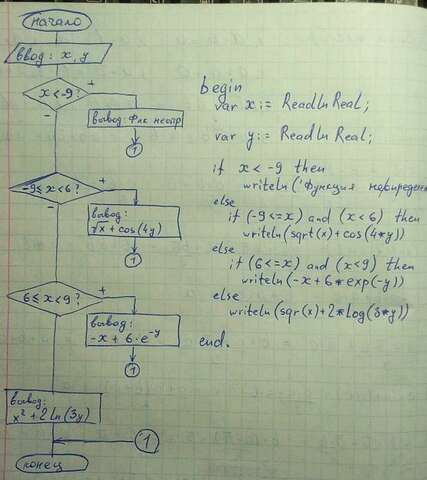 начало
ввод: x, y
x < -9?
+
-
вывод: Фик неопр
1
-9 ≤ x < 6?
+
-
вывод:
√x + cos(4y)
1
6 ≤ x < 9?
+
-
вывод:
-x + 6·e^-y
1
вывод:
x² + 2 ln(3y)
1
конец
begin
var x := ReadlnReal;
var y := ReadlnReal;
if x < -9 then
writeln('Функция
else
if (-9 <= x) and (x < 6) then
writeln(sqrt(x)+cos(4*y))
else
if (6 <= x) and (x < 9) then
writeln(-x + 6*exp(-y))
else
writeln(sqr(x)+2*log(3*y))
end.